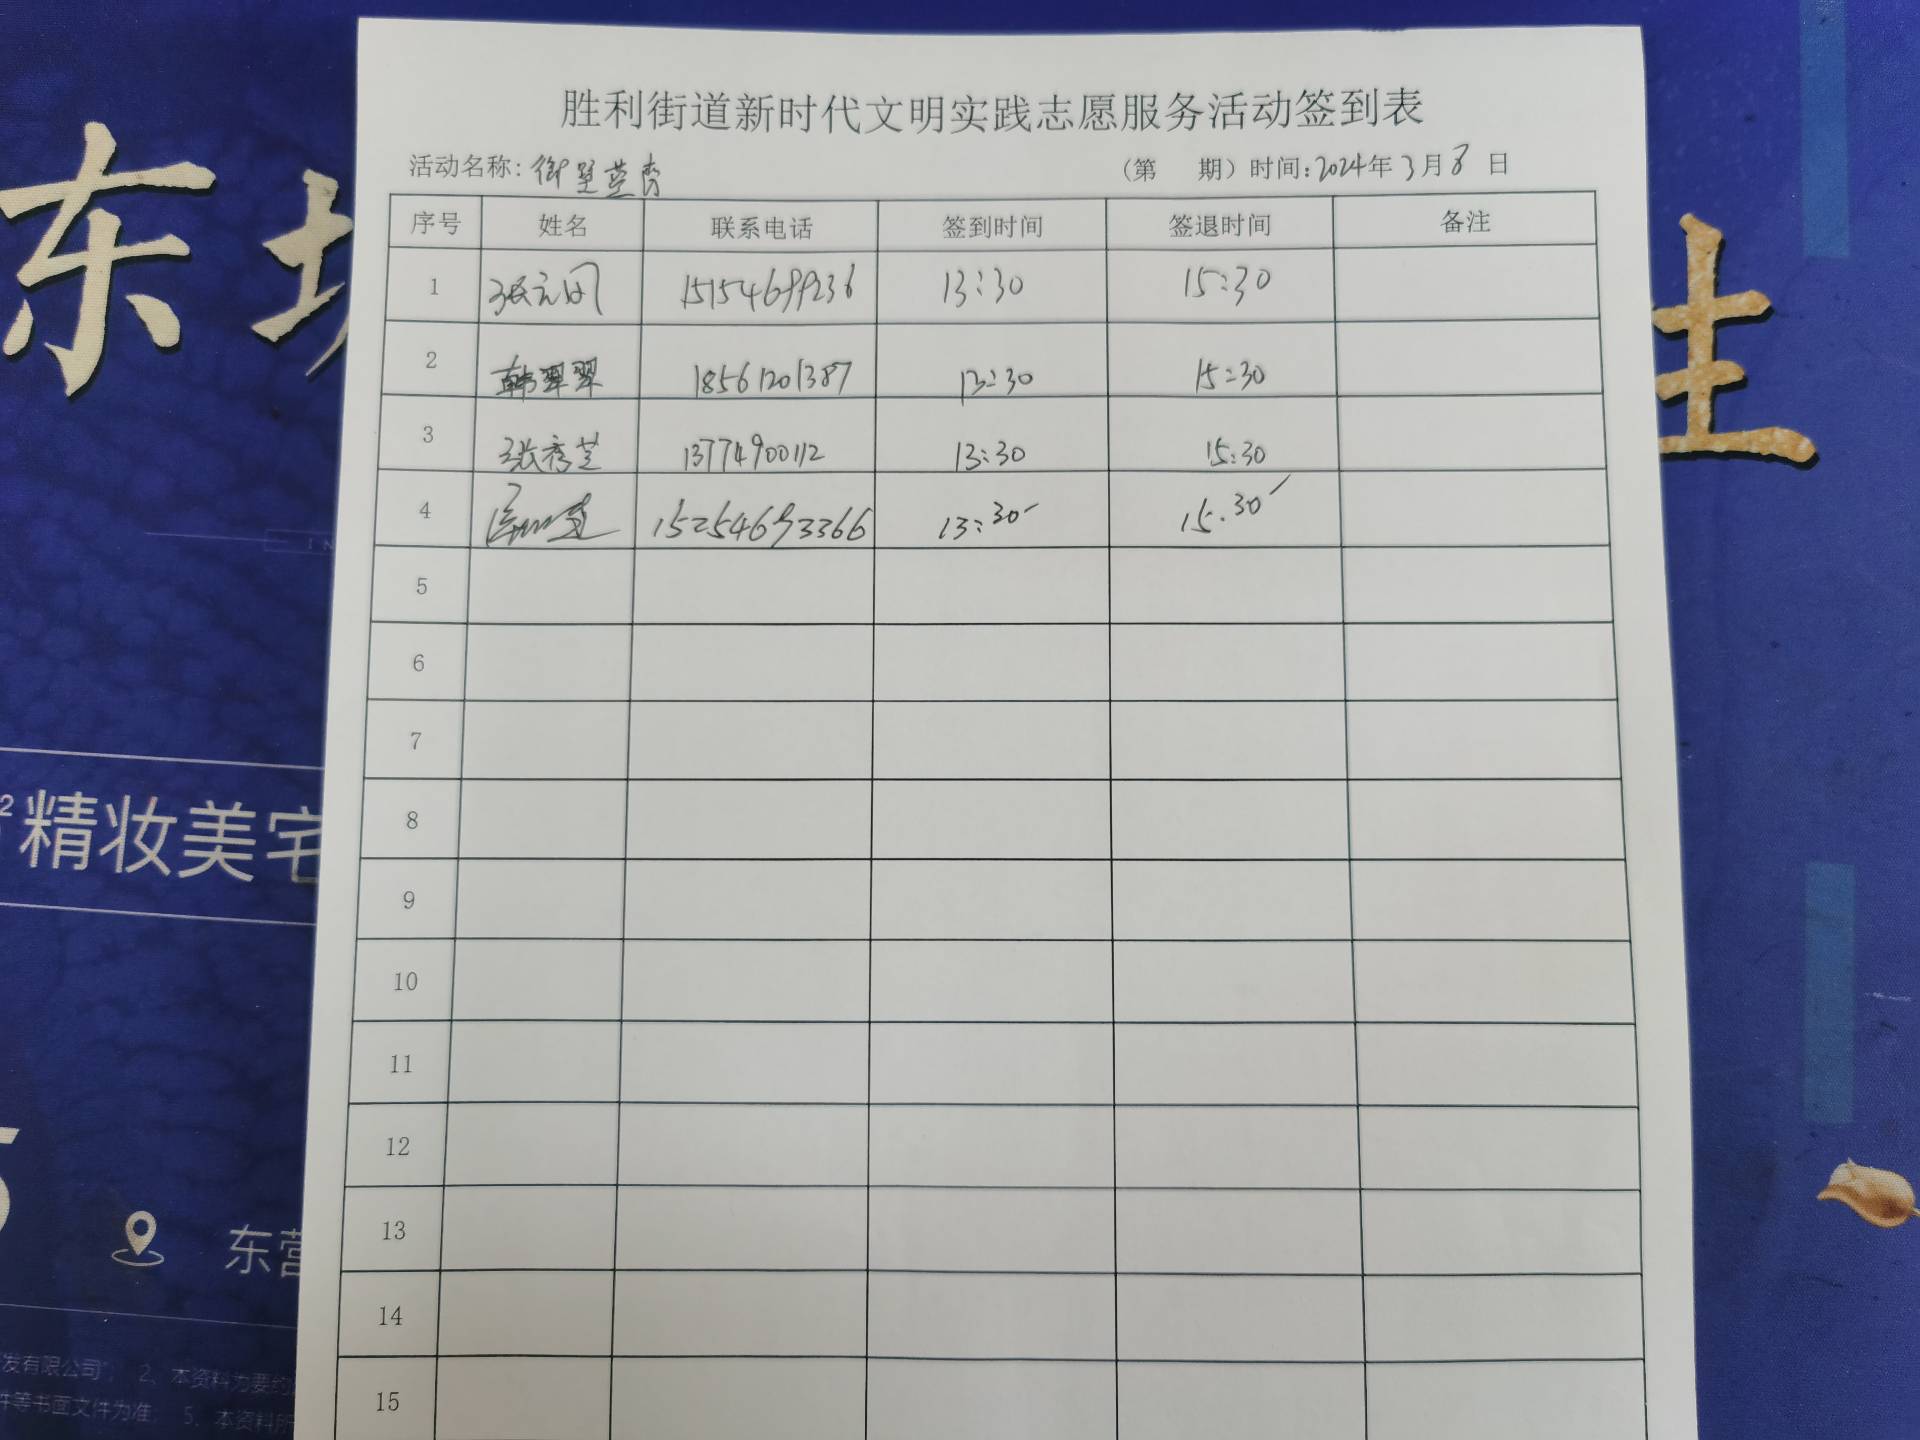 胜利街道新时代文明实践志愿服务活动签到表
活动名称: （第 期）时间:2024年3月8日
序号 姓名 联系电话 签到时间 签退时间 备注
1 张元凤 15154699236 13:30 15:30
2 韩翠翠 18561201387 13:30 15:30
3 张秀芝 13774900112 13:30 15:30
4 15254693366 13:30 15.30
5
6
7
8
9
10
11
12
13
14
15
东
生
精妆美宅
5
东营
发有限公司”； 2、本资料为要约
件等书面文件为准； 5、本资料所